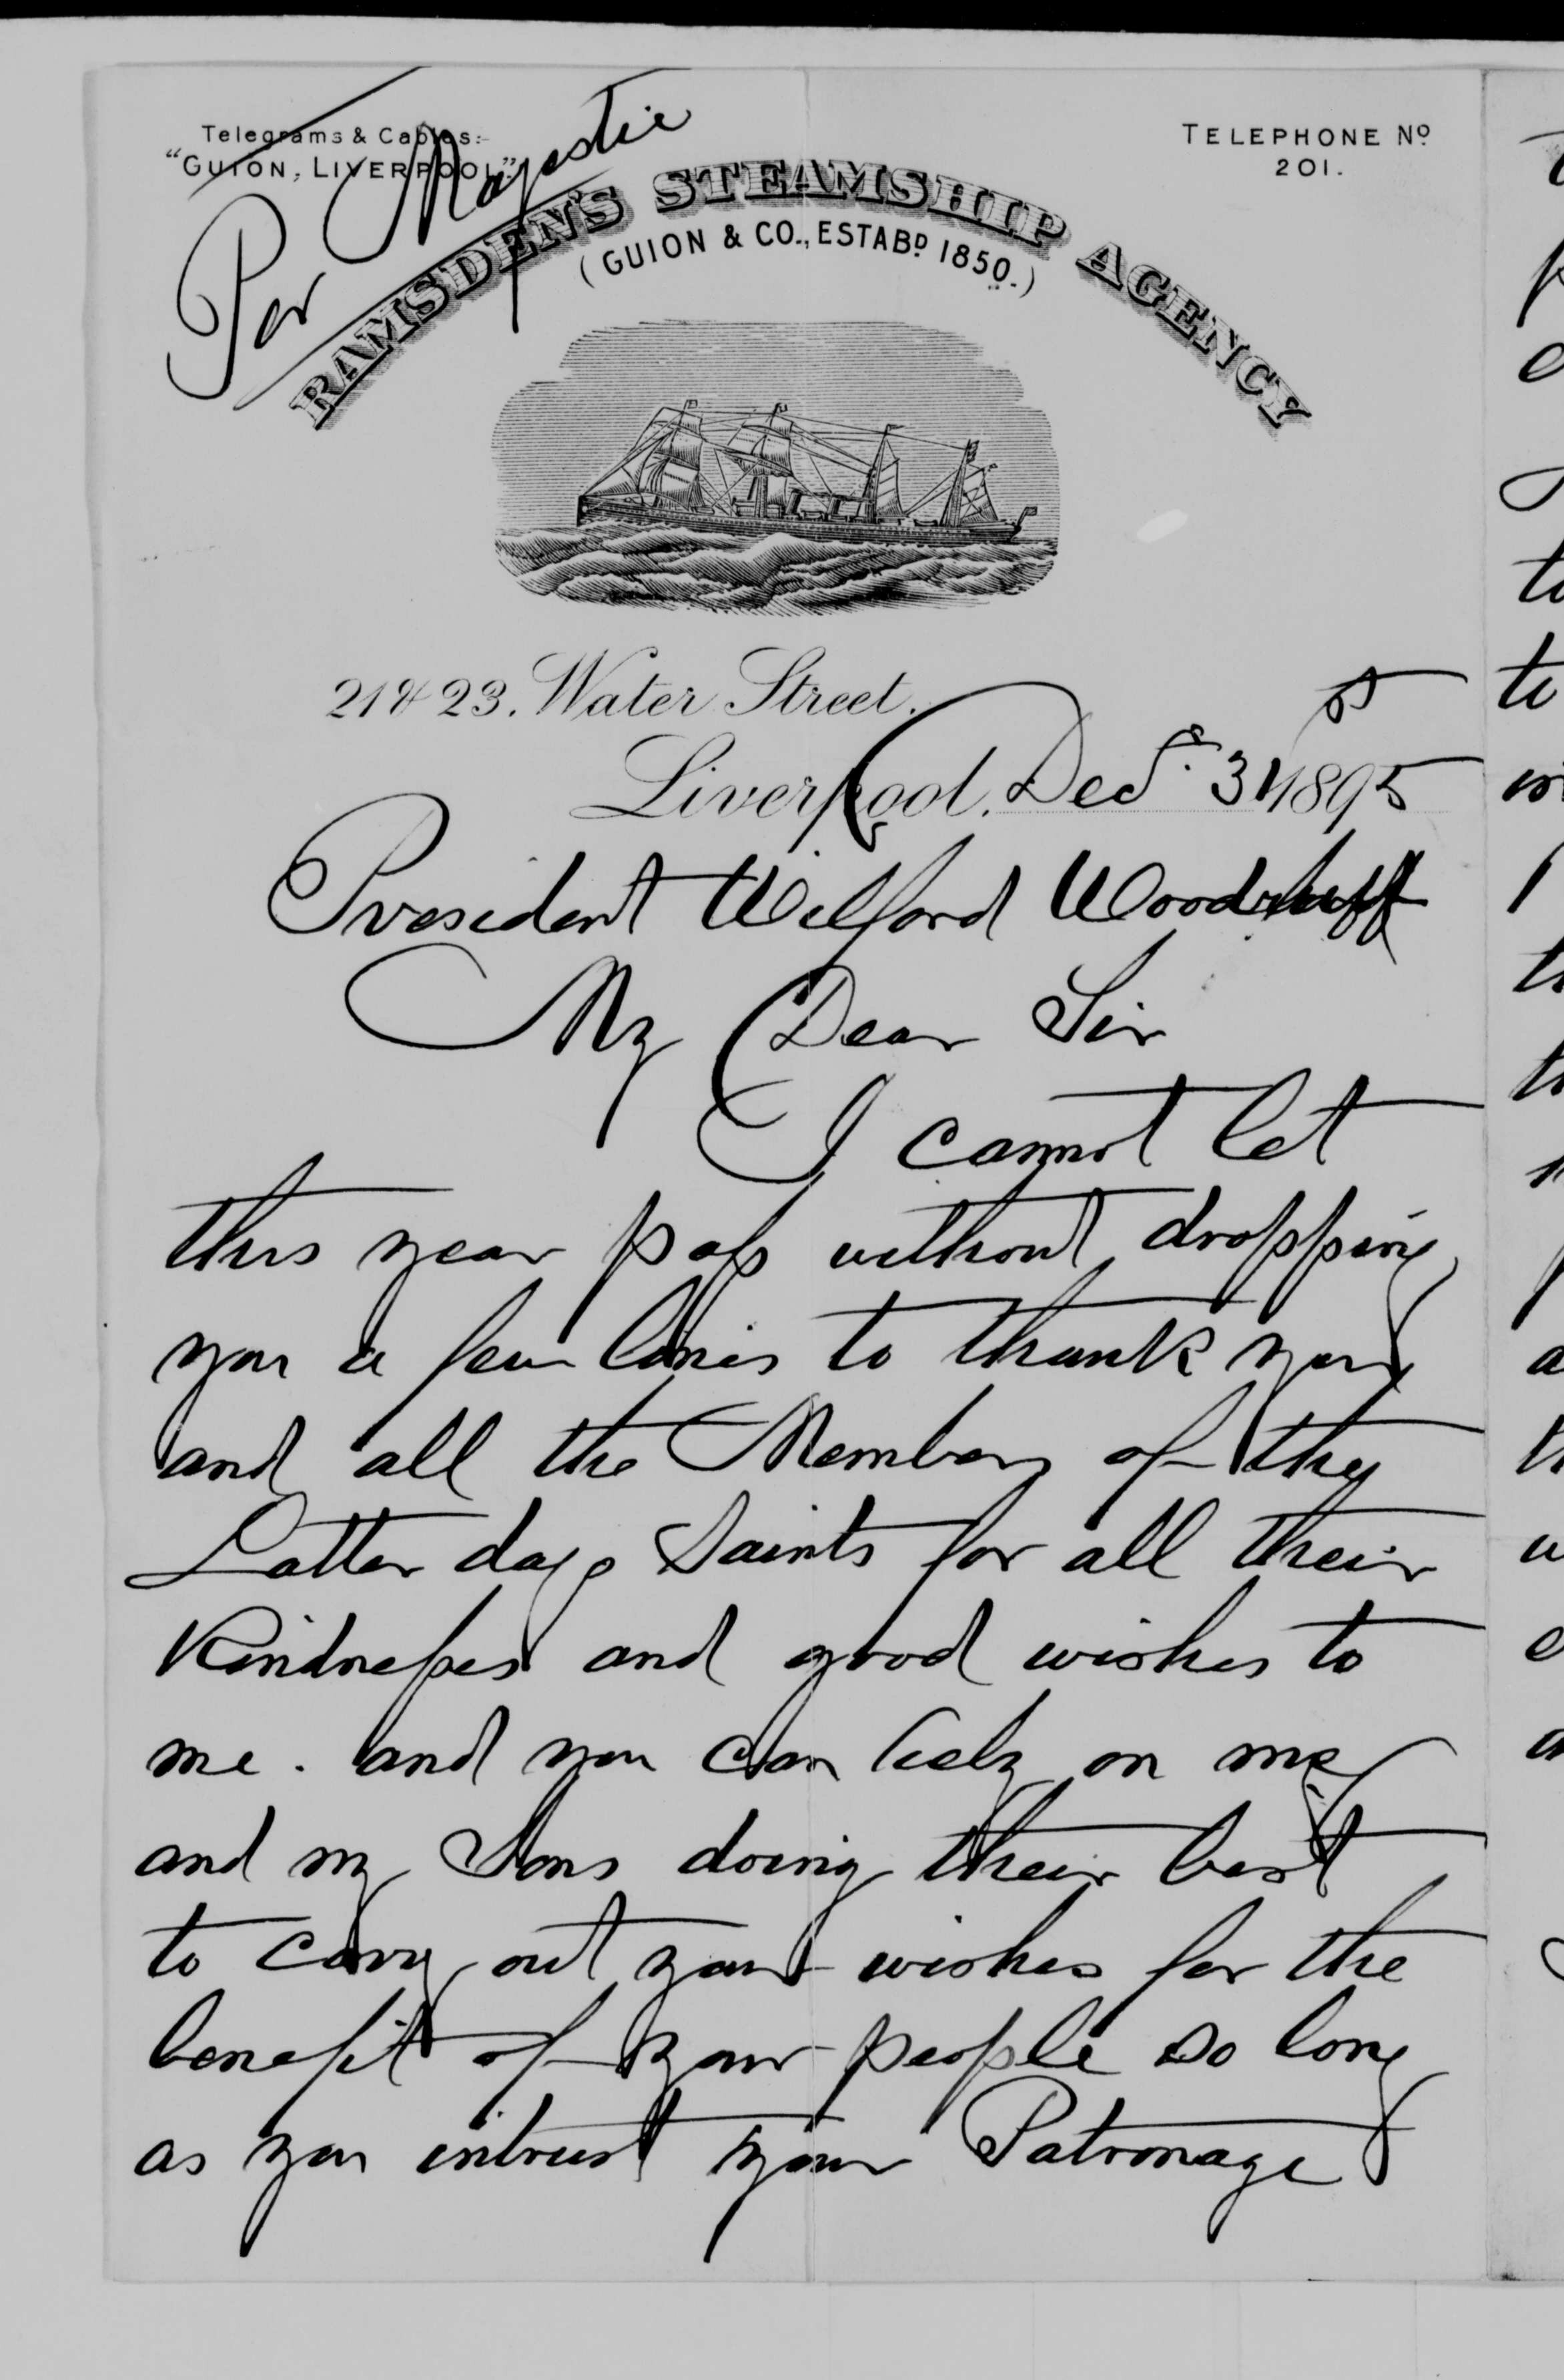 Telegrams & Cables:-
"GUION, LIVERPOOL."
TELEPHONE No
201.
Per Majestic
RAMSDEN'S STEAMSHIP AGENCY
(GUION & CO., ESTABD 1850.)
21 & 23. Water Street.
Liverpool, Decr. 31 1895
5
President Wilford Woodruff
My Dear Sir
I cannot let
this year pass without dropping
you a few lines to thank you
and all the Members of the
Latter days Saints for all their
Kindnesses and good wishes to
me. and you can rely on me
and my Sons doing their best
to carry out your wishes for the
benefit of your people so long
as you intrust your Patronage